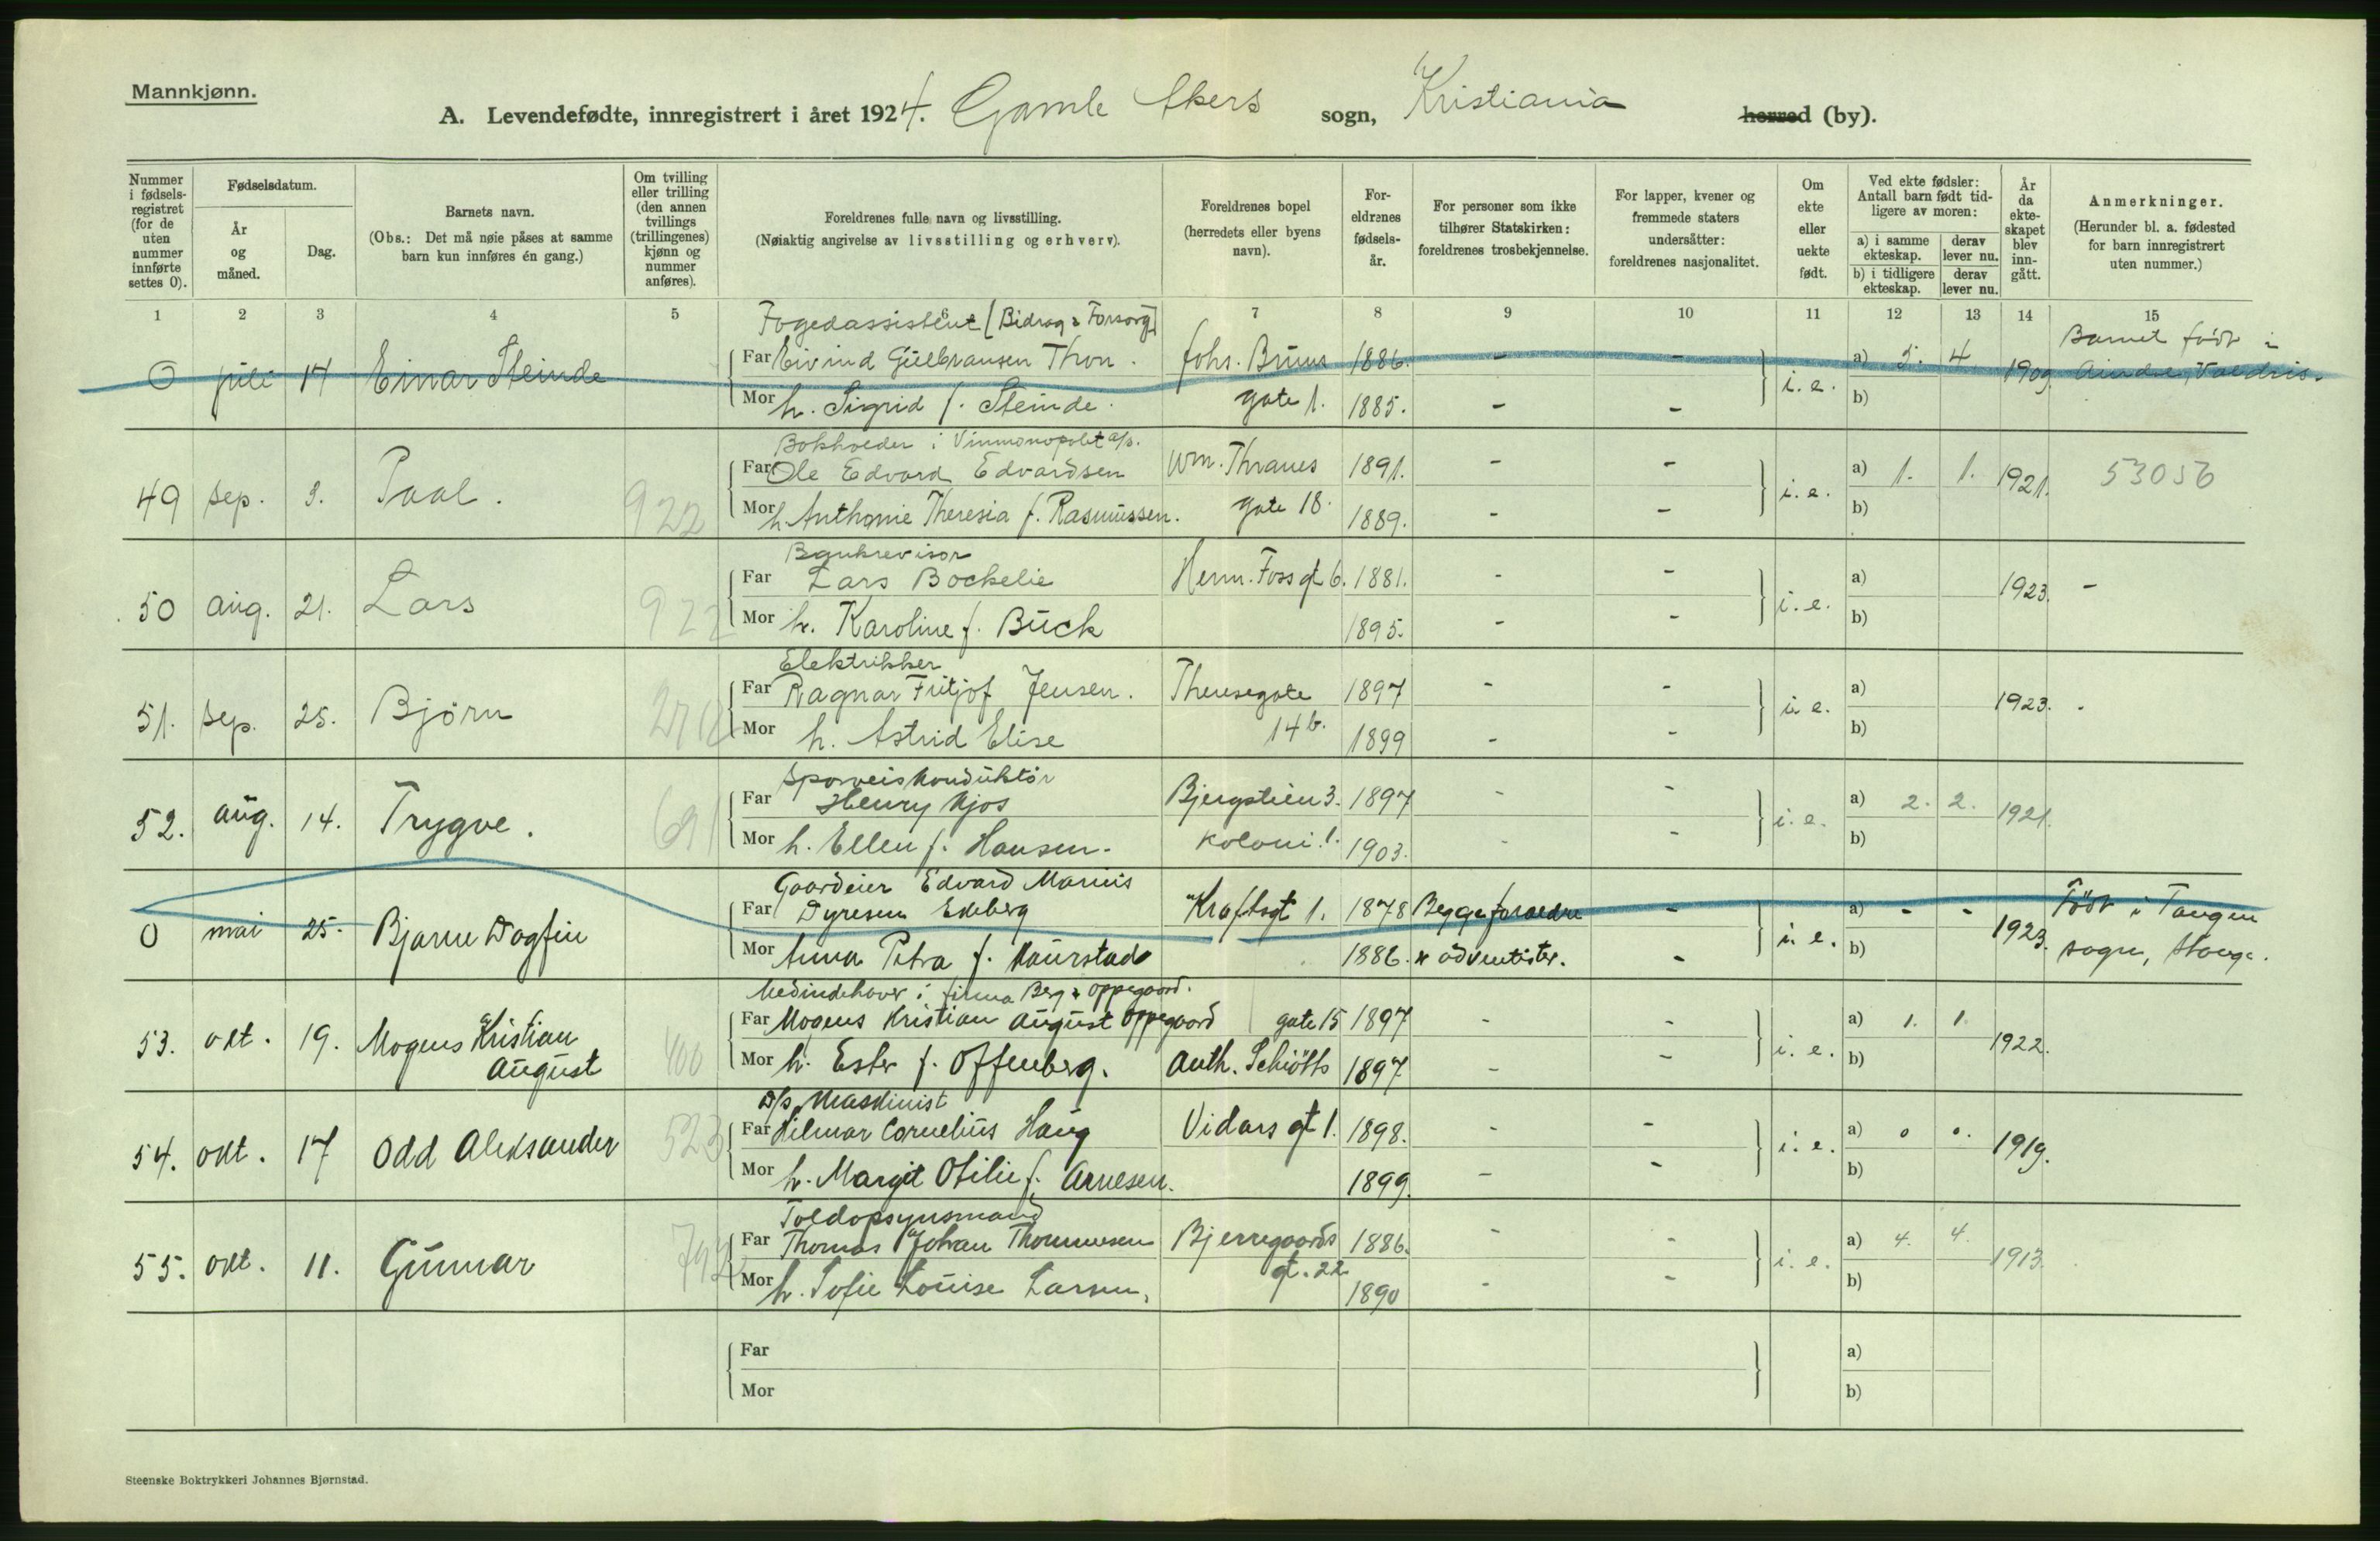 Mannkjønn.
A. Levendefødte, innregistrert i året 1924. Gamle Akers sogn, Kristiania herred (by).
Nummer i fødsels-registret (for de uten nummer innførte settes 0).
Fødselsdatum.
År og måned.
Dag.
Barnets navn.
(Obs.: Det må nøie påses at samme barn kun innføres én gang.)
Om tvilling eller trilling (den annen tvillings (trillingenes) kjønn og nummer anføres).
Foreldrenes fulle navn og livsstilling.
(Nøiaktig angivelse av livsstilling og erhverv).
Foreldrenes bopel (herredets eller byens navn).
For-eldrenes fødsels-år.
For personer som ikke tilhører Statskirken: foreldrenes trosbekjennelse.
For lapper, kvener og fremmede staters undersåtter: foreldrenes nasjonalitet.
Om ekte eller uekte født.
Ved ekte fødsler: Antall barn født tid-ligere av moren:
a) i samme ekteskap.
derav lever nu.
b) i tidligere ekteskap.
derav lever nu.
År da ekte-skapet blev inn-gått.
Anmerkninger.
(Herunder bl. a. fødested for barn innregistrert uten nummer.)
1 2 3 4 5 7 8 9 10 11 12 13 14 15
Fogedassistent (Bidrag & Forsorg)
0 juli 17 Einar Steinde Far Eivind Gulbransen Thon. Johs. Bruns 1886. - - i. e. a) 5. 4 1909 Barnet født i
Mor h. Sigrid f. Steinde. gate 1. 1885. - - b) Valdris.
Bokholder i Vinmonopolet a/s.
49 sep. 3. Paal. 922 Far Ole Edvard Edvardsen Wm. Thranes 1891. - - i. e. a) 1. 1. 1921. 53056
Mor h. Anthonie Theresia f. Rasmussen. gate 18. 1889. - - b)
Bankrevisor
50 aug. 21. Lars 922 Far Lars Bockelie Herm. Foss gt 6. 1881. - - i. e. a) 1923. -
Mor h. Karoline f. Buck 1895. - - b)
Elektrikker
51. sep. 25. Bjørn Far Ragnar Fritjof Jensen. Theresegate 1897 - - i. e. a) 1923. -
Mor h. Astrid Elise 14 b. 1899 - - b)
Sporveiskonduktør
52. aug. 14. Trygve. 691 Far Henry Kjos Bjergstien 3. 1897 - - i. e. a) 2. 2. 1921.
Mor h. Ellen f. Hansen. koloni 1. 1903. - - b)
Gaardeier Edvard Marius
0 mai 25. Bjarne Dagfin Far Dyresen Ekeberg Kraftsgt 1. 1878 Begge foraeldre - i. e. a) - - 1923. Født i Tangen
Mor Anna Petra f. Kaurstad 1886. er adventister. - b) sogn, Stange.
Medindehaver i firma Berg & Oppegaard.
53. okt. 19. Mogens Kristian Far Mogens Kristian August Oppegaard gate 15 1897 - - i. e. a) 1. 1. 1922.
August 400 Mor h. Ester f. Offenberg. Anth. Schiøtts 1897 - - b)
D/s Maskinist
54. okt. 17 Odd Aleksander 523 Far Hilmar Cornelius Haug Vidars gt 1. 1898. - - i. e. a) 0 0. 1919.
Mor h. Margit Otilie f. Arnesen. 1899. - - b)
Toldopsynsmand
55. okt. 11. Gunnar 792 Far Thomas Johan Thommesen Bjerregaards 1886. - - i. e. a) 4. 4. 1913.
Mor h. Sofie Louise Larsen. gt. 22 1890 - - b)
Far a)
Mor b)
Steenske Boktrykkeri Johannes Bjørnstad.